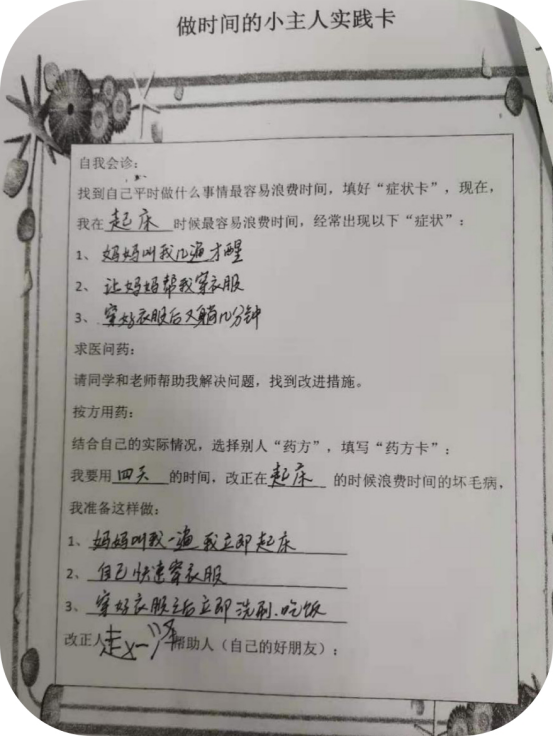 做时间的小主人实践卡
自我会诊:
找到自己平时做什么事情最容易浪费时间，填好“症状卡”，现在，
我在 起床 时候最容易浪费时间，经常出现以下“症状”：
1、妈妈叫我几遍才醒
2、让妈妈帮我穿衣服
3、穿好衣服后又躺几分钟
求医问药:
请同学和老师帮助我解决问题，找到改进措施。
按方用药:
结合自己的实际情况，选择别人“药方”，填写“药方卡”：
我要用 四天 的时间，改正在 起床 的时候浪费时间的坏毛病，
我准备这样做:
1、妈妈叫我一遍我立即起床
2、自己快速穿衣服
3、穿好衣服之后立即洗刷、吃饭
改正人 帮助人（自己的好朋友）：